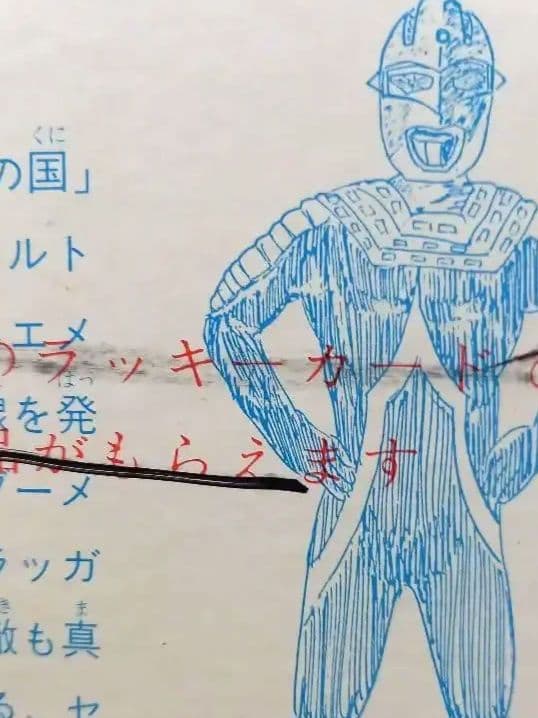 の国」
くに
ルト
エメ
のラッキーカード
を発
はっ
がもらえます
ーメ
ラッガ
敵も真
き ま
る、セ